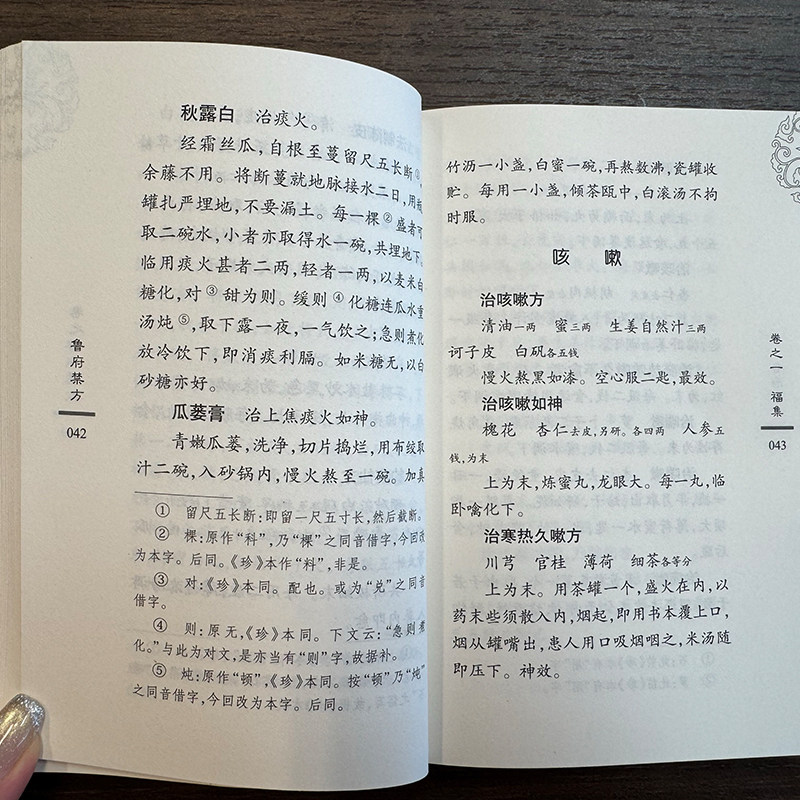 秋露白　治痰火。
经霜丝瓜，自根至蔓留尺五长断①，
余藤不用。将断蔓就地脉接水二日，用
罐扎严埋地，不要漏土。每一棵②盛者可
取二碗水，小者亦取得水一碗，共埋地下。
临用痰火甚者二两，轻者一两，以麦米白
糖化，对③甜为则。缓则④化糖连瓜水重
汤炖⑤，取下露一夜，一气饮之；急则煮化
放冷饮下，即消痰利膈。如米糖无，以白
砂糖亦好。
瓜蒌膏　治上焦痰火如神。
青嫩瓜蒌，洗净，切片捣烂，用布绞取
汁二碗，入砂锅内，慢火熬至一碗。加真
①　留尺五长断：即留一尺五寸长，然后截断。
②　棵：原作“科”，乃“棵”之同音借字，今回改
为本字。后同。《珍》本作“料”，非是。
③　对：《珍》本同。配也。或为“兑”之同音
借字。
④　则：原无，《珍》本同。下文云：“急则煮
化。”与此为对文，是亦当有“则”字，故据补。
⑤　炖：原作“顿”，《珍》本同。按“顿”乃“炖”
之同音借字，今回改为本字。后同。
鲁府禁方
042
竹沥一小盏，白蜜一碗，再熬数沸，瓷罐收
贮。每用一小盏，倾茶瓯中，白滚汤不拘
时服。
咳　嗽
治咳嗽方
清油一两　蜜三两　生姜自然汁三两
诃子皮　白矾各五钱
慢火熬黑如漆。空心服二匙，最效。
治咳嗽如神
槐花　杏仁去皮，另研。各四两　人参五
钱，为末
上为末，炼蜜丸，龙眼大。每一丸，临
卧噙化下。
治寒热久嗽方
川芎　官桂　薄荷　细茶各等分
上为末。用茶罐一个，盛火在内，以
药末些须散入内，烟起，即用书本覆上口，
烟从罐嘴出，患人用口吸烟咽之，米汤随
即压下。神效。
卷之一　福集
043